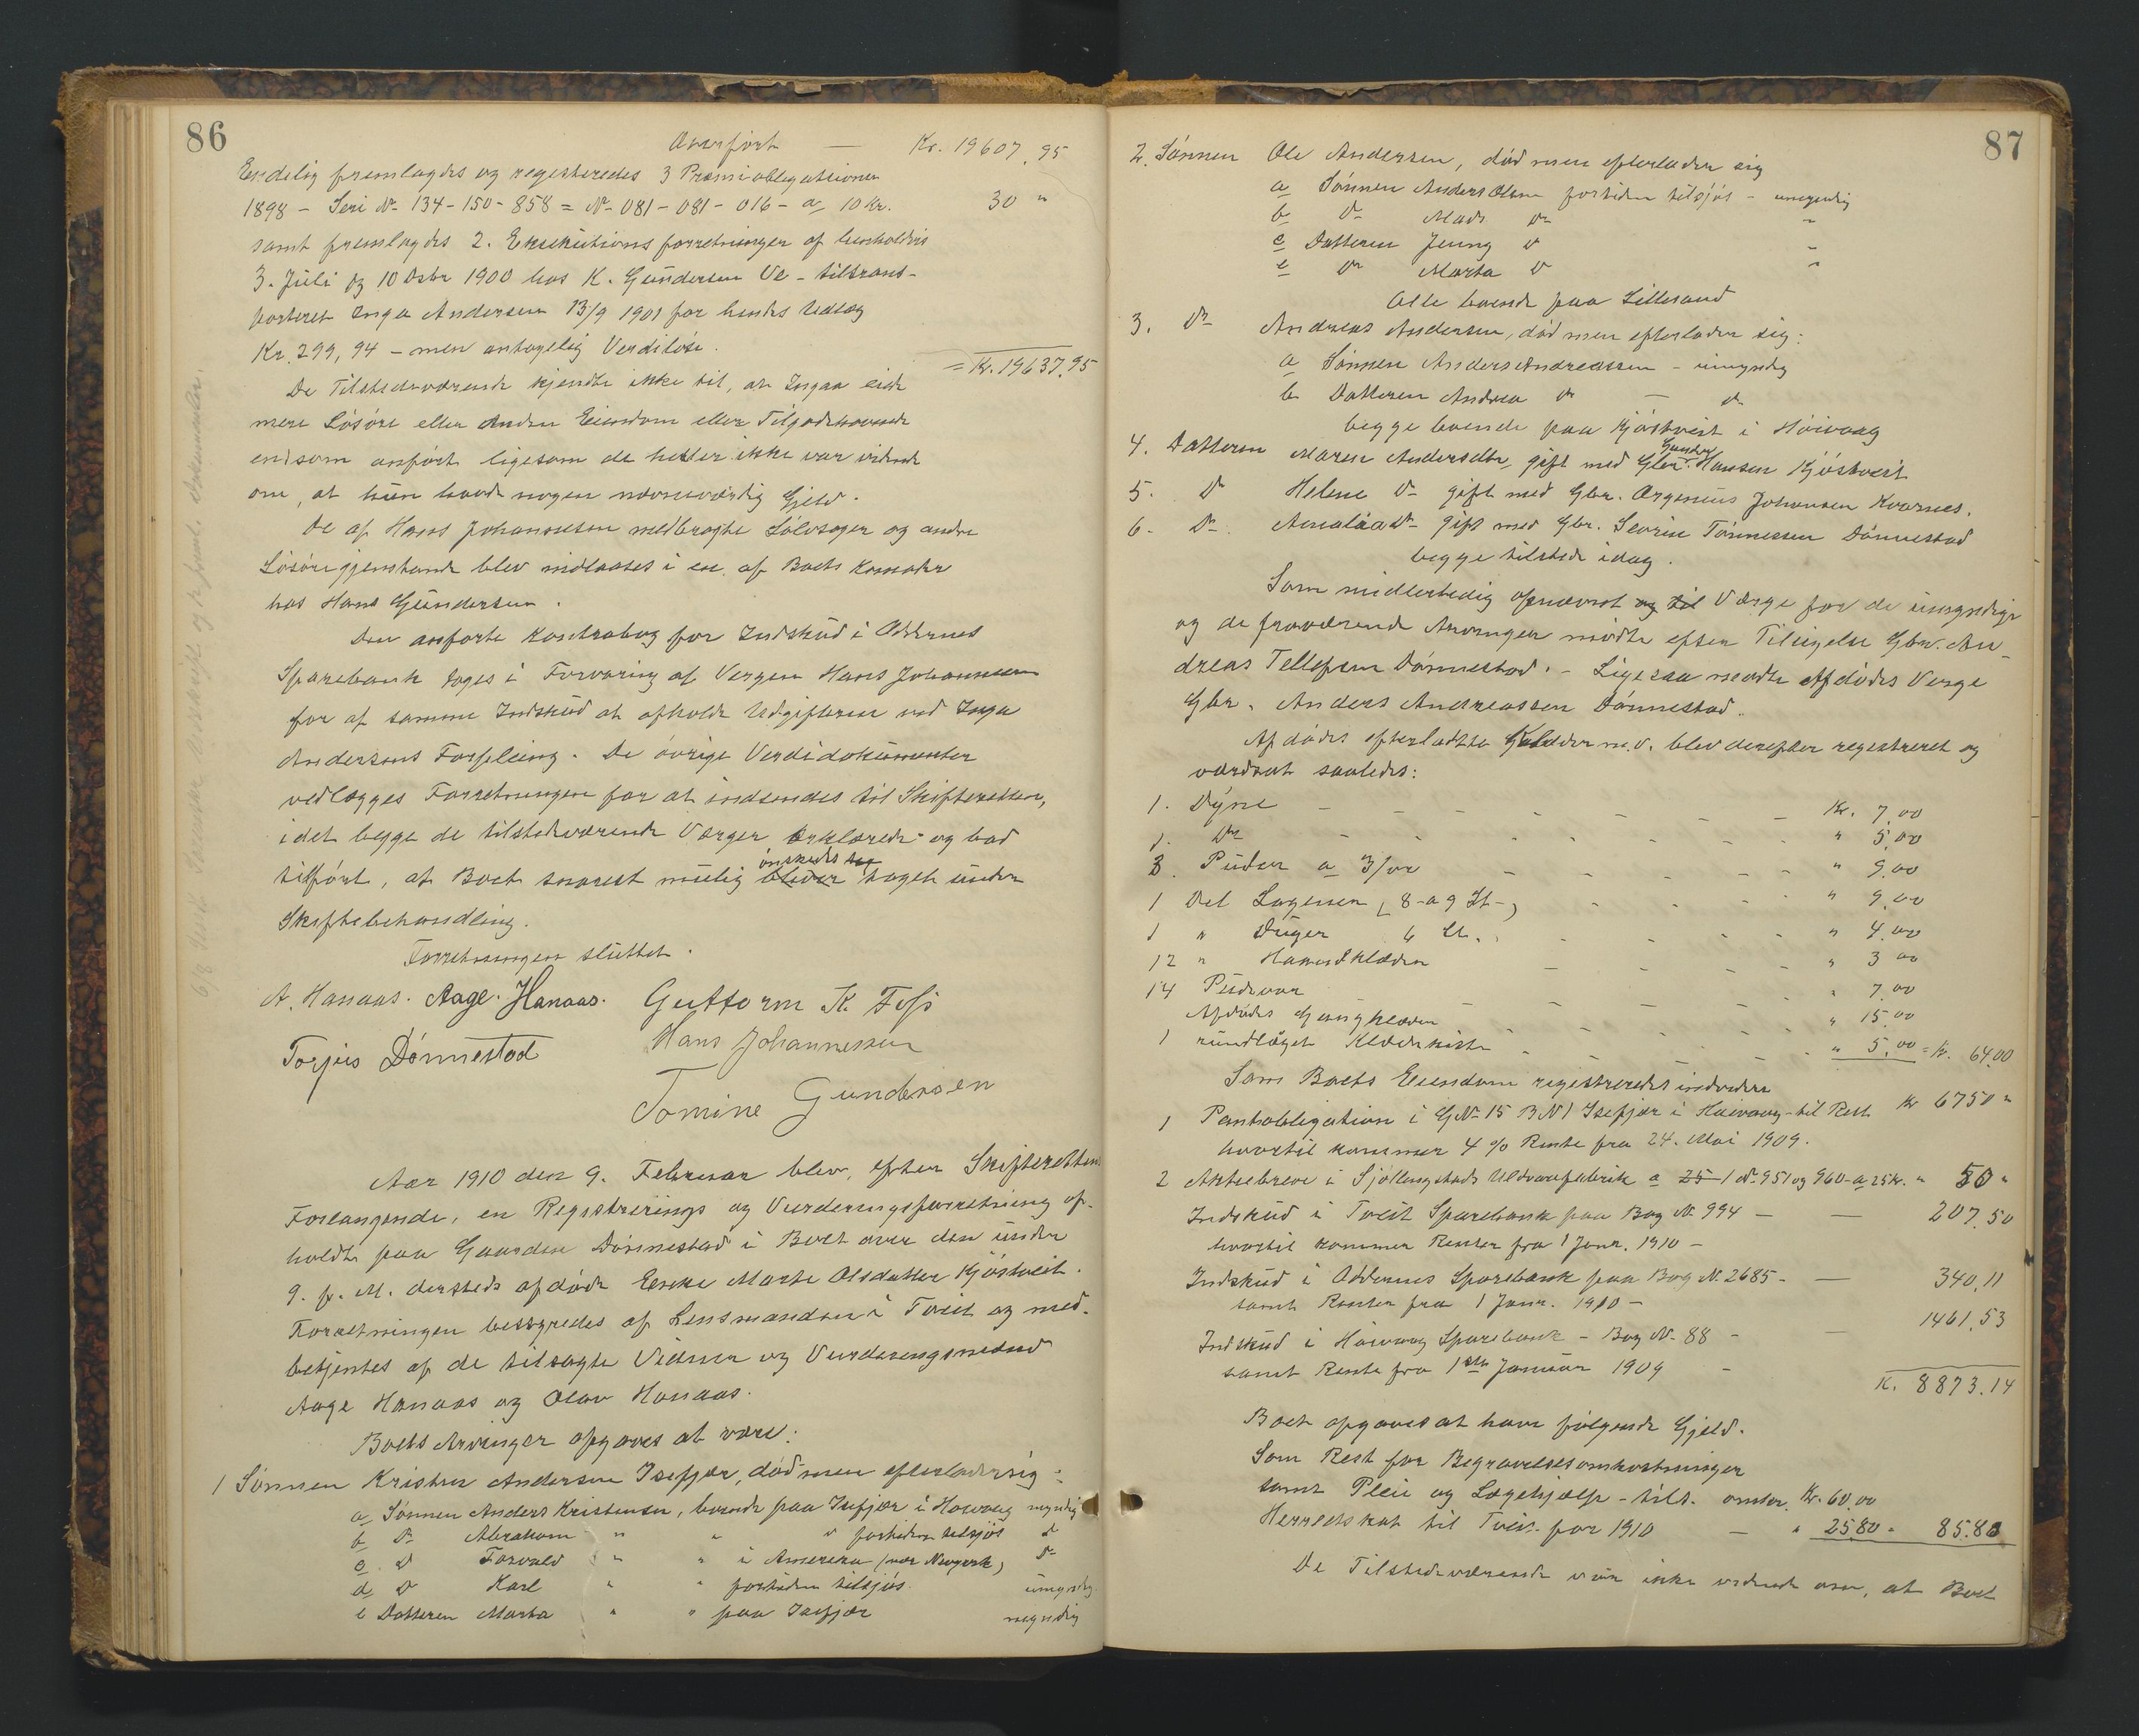 86
Overført — Kr. 19607,95
Endelig fremlagdes og registeredes 3 Præmiobligationer
1898 - Seri No 134 - 150 - 858 = No 081 - 081 - 016 - a 10 Kr. 30 "
samt fremlagdes 2. Eksekutionsforretninger af henholdvis
3. Juli og 10 Osbr 1900 hos K. Gundersen Ve - tiltrans-
porteret Inga Andersen 13/9 1901 for hendes Udlæg
Kr. 299,94 - men antagelig Verdiløse.
= Kr. 19637,95
De Tilstedeværende kjendte ikke til, at Inga eide
mere Løsøre eller anden Eiendom eller Tilgodehavende
end som anført ligesom de heller ikke var vidende
om, at hun havde nogen nævneværdig Gjeld.
De af Hans Johannesen medbragte Sølvsager og andre
Løsøregjenstande blev indlaaset i en af Boets Komoder
hos Hans Gundersen.
Den anførte Kontrabog for Indskud i Oddernes
Sparebank toges i Forvaring af Vergen Hans Johannesen
for af samme Indskud at afholde Udgifterne ved Inga
Andersens Forpleiing. De øvrige Verdidokumenter
vedlægges Forretningen for at indsendes til Skifteretten,
idet begge de tilstedeværende Værger erklærede og bad
tilført, at Boet snarest mulig bliver ønskedes tagen under
Skiftebehandling.
Forretningen sluttet.
A. Hanaas. Aage. Hanaas. Guttorm K. Foss
Torjus Dønnestad Hans Johannessen
Tomine Gundersen
Aar 1910 den 9. Februar blev, efter Skifterettens
Forlangende, en Registrerings og Vurderingsforretning af-
holdt paa Gaarden Dønnestad i Boet over den under
9. f. M. dersteds afdøde Enke Marte Olsdatter Kjøstveit.
Forretningen bestyredes af Lensmanden i Tveit og med-
betjentes af de tilsagte Vidner og Vurderingsmænd
Aage Hanaas og Olav Hanaas.
Boets Arvinger opgaves at være:
1 Sønnen Kristen Andersen Isefjær, død men efterlader sig:
a Sønnen Anders Kristensen, boende paa Isefjær i Høivaag myndig
b Do Abraham " " " fortiden tilsjøs do
c. Do Torvald " " i Amerika (nær Newyork) do
d Do Karl " " fortiden tilsjøs umyndig
e Datteren Marta " " paa Isefjær myndig
87
2. Sønnen Ole Andersen, død men efterlader sig
a Sønnen Anders Olsen fortiden tilsjøs - umyndig
b Do Mads Do "
c Datteren Jenny Do "
e Do Marta Do "
Alle boende paa Lillesand
3. Do Andreas Andersen, død men efterlader sig:
a Sønnen Anders Andreassen - umyndig
b Datteren Andrea Do — do
begge boende paa Kjøstveit i Høivaag
4. Datteren Maren Andersdtr, gift med Gbr. Gunder Hansen Kjøstveit
5. Do Helene Do gift med Gbr. Argenius Johansen Kvarnes.
6. Do Amalia Do gift med Gbr. Severin Tønnessen Dønnestad
begge tilstede idag.
Som midlertidig opnævnt og til Værge for de umyndige
og de fraværende Arvinger mødte efter Tilsigelse Gbr. An-
dreas Tellefsen Dønnestad. - Ligesaa mødte Afdødes Verge
Gbr. Anders Andreassen Dønnestad.
Afdødes efterladte Klæder m.v. blev derefter registreret og
værdsat saaledes:
1. Dyne - - - - - - - Kr. 7,00
1. Do - - - - - - - " 5,00
3. Puder a 3/00 - - - - - " 9,00
1 Del Lagener (8 a 9 St-) - - - - " 9,00
1 " Duger 6 St. - - - - " 4,00
12 " Haandklæder - - - - " 3,00
14 Pudevar - - - - " 7,00
Afdødes Gangklæder - - - - " 15,00
1 rundlaaget Klædekiste - - - - " 5,00 = Kr. 64,00
Som Boets Eiendom registreredes endvidere
1 Pantobligation i GNo 15 BN 1 Isefjær i Høivaag - til Rest Kr 6750 "
hvortil kommer 4 % Rente fra 24. Mai 1909.
2 Aktiebreve i Sjølingstads Uldvarefabrik a 25 / No 951 og 960 - a 25 Kr. " 50 "
Indskud i Tveit Sparebank paa Bog No 994 — — 207,50
hvortil kommer Renter fra 1 Janr. 1910 -
Indskud i Oddernes Sparebank paa Bog No. 2685 - — 340,11
samt Renter fra 1 Janr. 1910 -
Indskud i Høivaag Sparebank - Bog No 88 - — 1461,53
samt Rente fra 1ste Januar 1909 -
K. 8873,14
Boet opgaves at have følgende Gjeld.
Som Rest for Begravelsesomkostninger
samt Pleie og Lægehjælp - tils. omtr. Kr. 60,00
Herredskat til Tveit for 1910 — " 25,80 = 85,80
De Tilstedeværende var ikke vidende om, at Boet